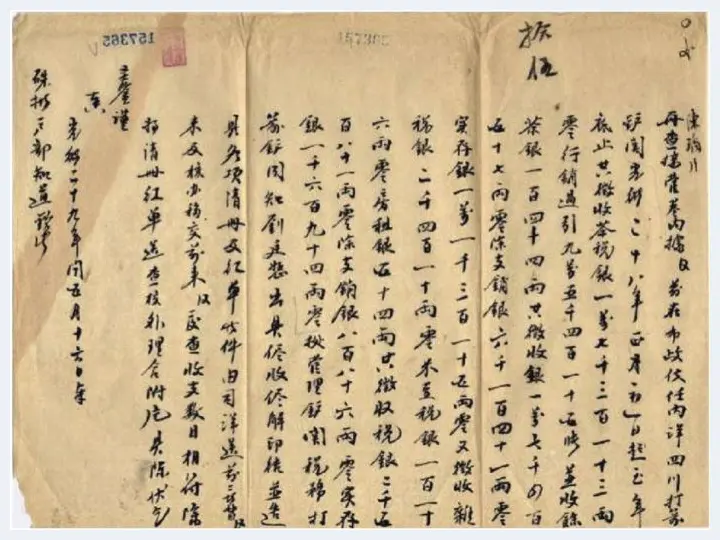 再查接管卷內據臣前在布政使任內詳四川打箭
爐關光緒二十八年正月初一日起至年
底止共徵收茶稅銀一萬七千三百一十三兩
零行銷邊引九萬五千四百一十五張並收餘
茶銀一百四十四兩共徵收銀一萬七千四百
五十七兩零除支銷銀六千一百四十一兩零
實存銀一萬一千三百一十五兩零又徵收雜
稅銀二千四百一十兩零米豆稅銀一百一十
六兩零房租銀五十四兩共徵收稅銀二千五
百八十一兩零除支銷銀八百八十六兩零實存
銀一千六百九十四兩零據管理爐關稅務打
箭爐同知劉廷恕出具儘收儘解印結並造
具各項清冊及紅單件由司詳送前督臣
未及核辦移交前來臣覆查收支數目相符除
將清冊紅單送查核外理合附片具陳伏乞
聖鑒謹
奏
光緒二十九年閏五月十六日奉
硃批戶部知道欽此
157365